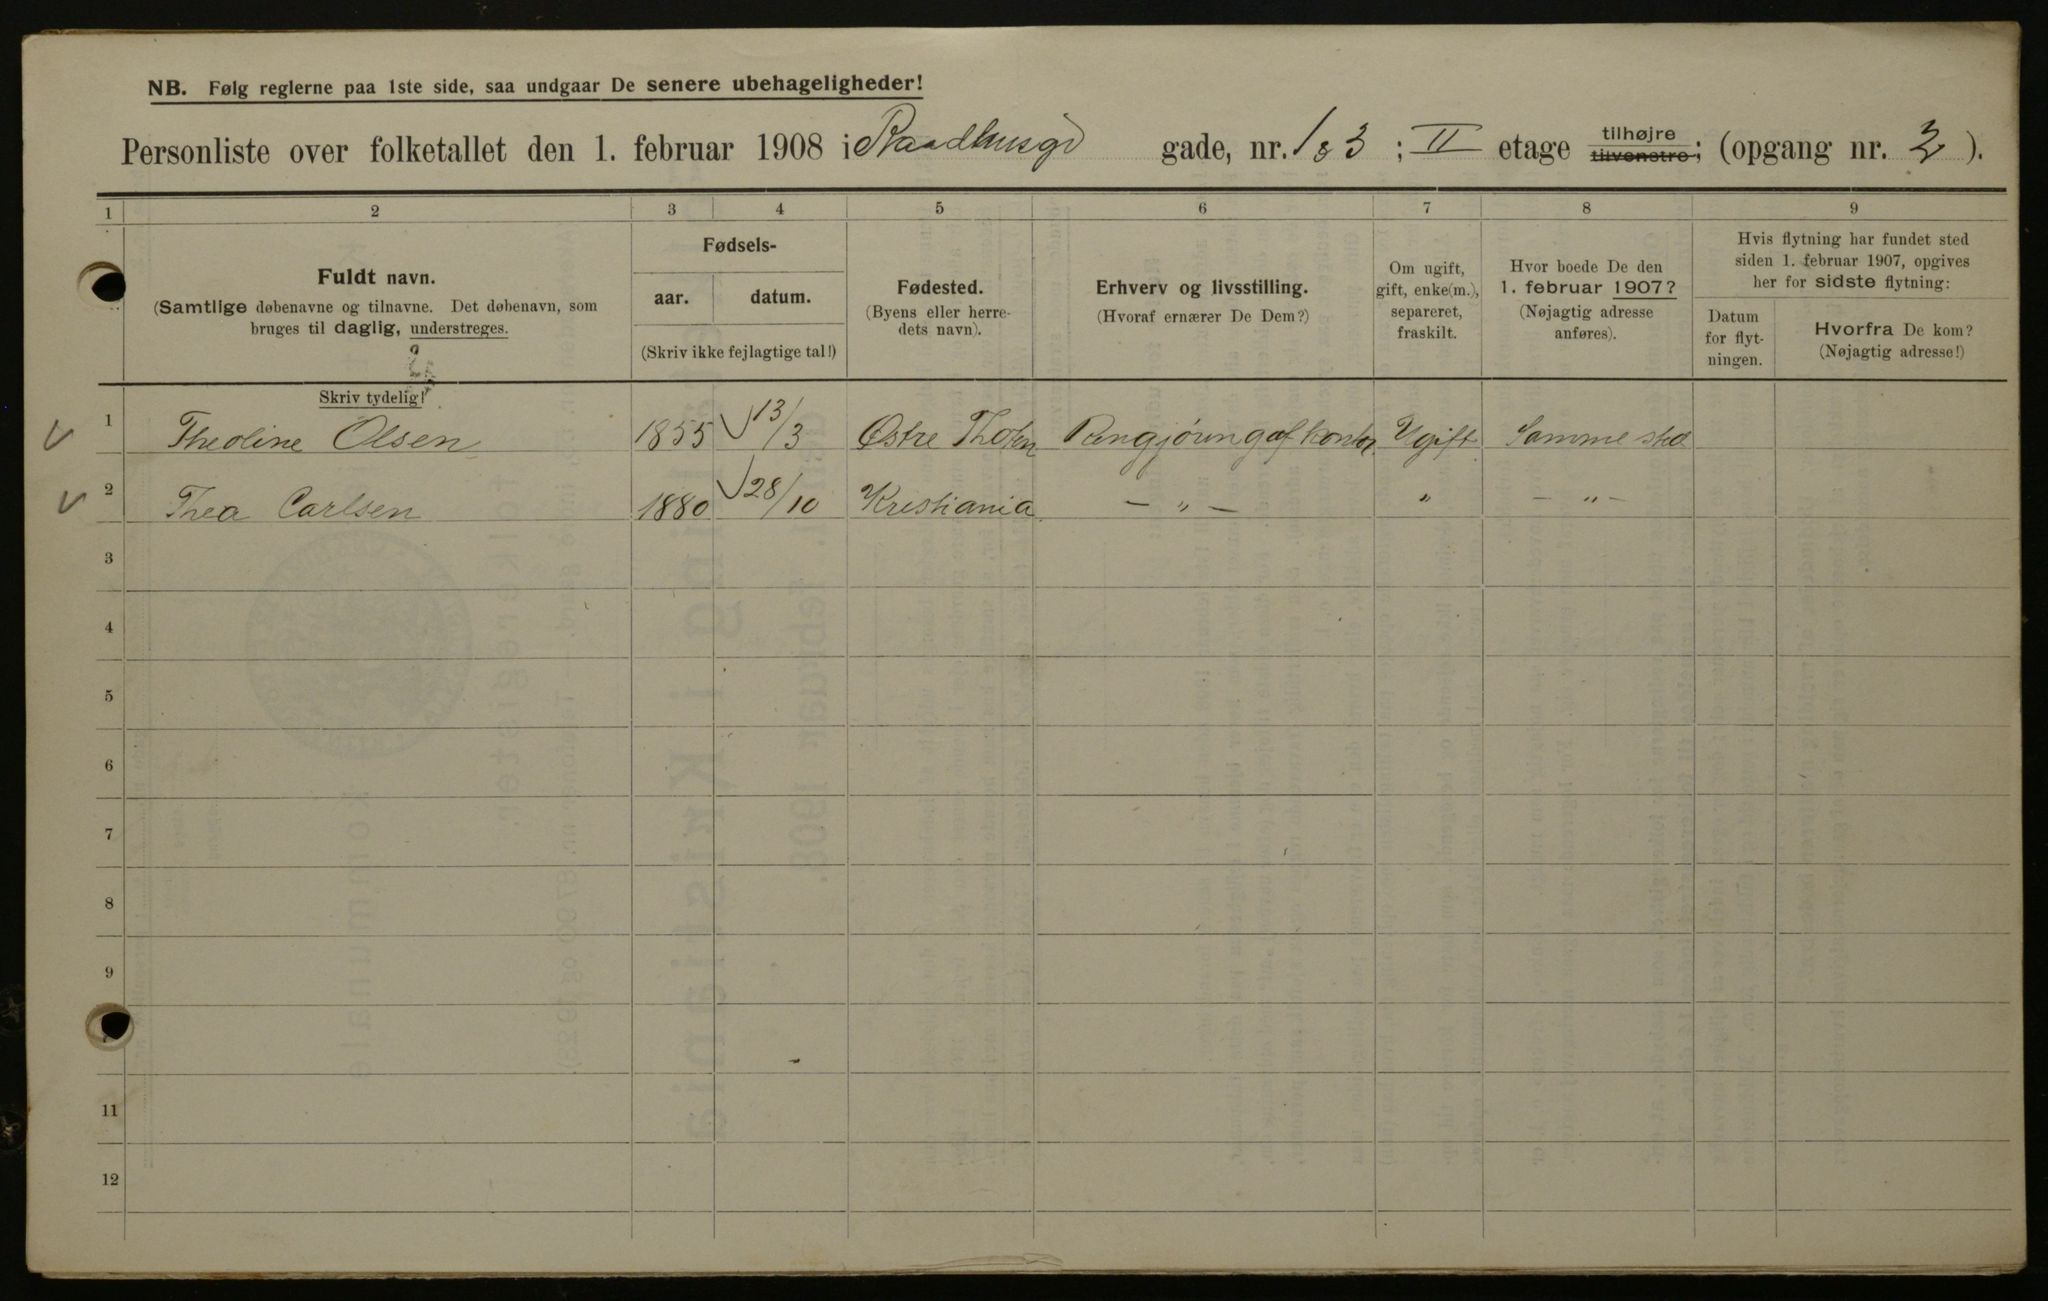 NB. Følg reglerne paa 1ste side, saa undgaar De senere ubehageligheder!
Personliste over folketallet den 1. februar 1908 i Raadhusgd gade, nr. 1 & 3 ; II etage tilhøjre tilvenstre; (opgang nr. 2 ).
1 2 3 4 5 6 7 8 9
Fuldt navn.
(Samtlige døbenavne og tilnavne. Det døbenavn, som
bruges til daglig, understreges.
Fødsels-
aar. datum.
(Skriv ikke fejlagtige tal!)
Fødested.
(Byens eller herre-
dets navn).
Erhverv og livsstilling.
(Hvoraf ernærer De Dem?)
Om ugift,
gift, enke(m.),
separeret,
fraskilt.
Hvor boede De den
1. februar 1907?
(Nøjagtig adresse
anføres).
Hvis flytning har fundet sted
siden 1. februar 1907, opgives
her for sidste flytning:
Datum
for flyt-
ningen.
Hvorfra De kom?
(Nøjagtig adresse!)
2
Skriv tydelig!
1 Theoline Olsen 1855 13/3 Østre Thoten Rengjøring af kontor Ugift Samme sted
2 Thea Carlsen 1880 28/10 Kristiania — „ — „ — „ —
3
4
5
6
7
8
9
11
12